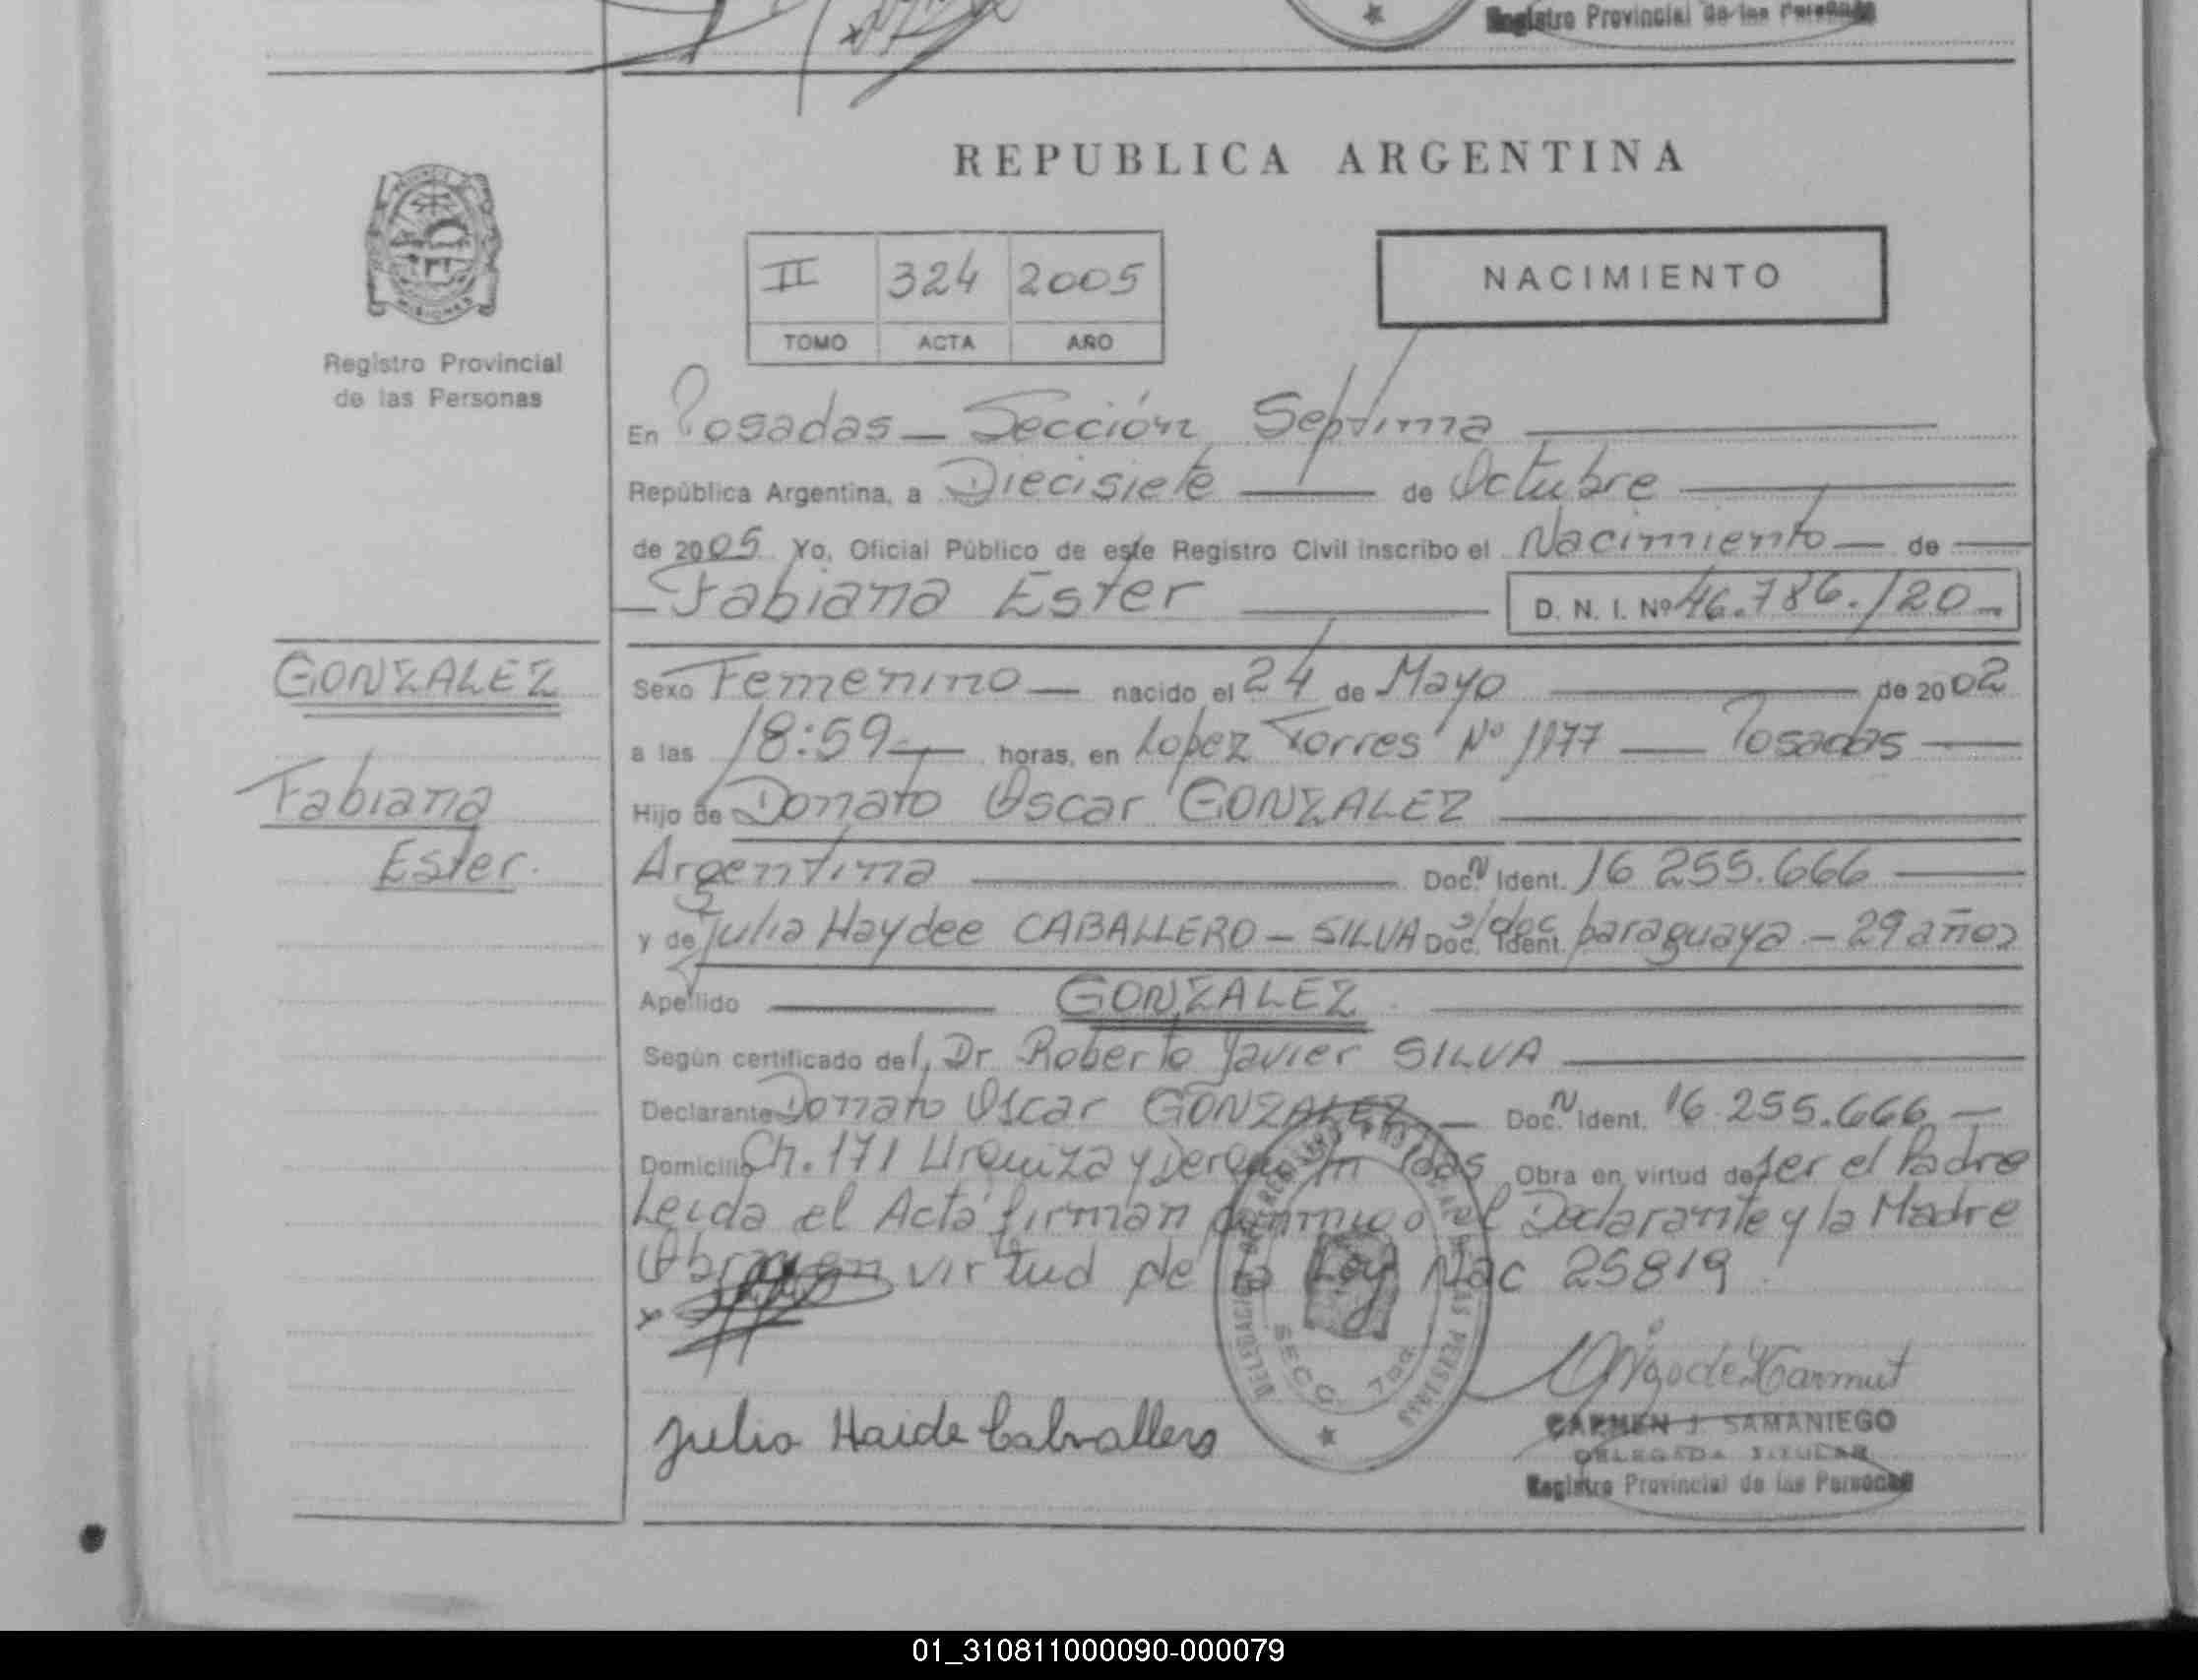 Registro Provincial de las Personas
REPUBLICA ARGENTINA
MISIONES
Registro Provincial
de las Personas
II 324 2005
TOMO ACTA AÑO
NACIMIENTO
En Posadas — Sección Septima
República Argentina, a Diecisiete de Octubre
de 2005 Yo, Oficial Público de este Registro Civil inscribo el Nacimiento — de
Fabiana Ester D. N. I. Nº 46.786.120
GONZALEZ
Fabiana
Ester.
Sexo Femenino — nacido el 24 de Mayo de 2002
a las 18:59 horas, en Lopez Torres Nº 1177 — Posadas
Hijo de Donato Oscar GONZALEZ
Argentina Doc. N Ident. 16 255.666
y de Julia Haydee CABALLERO – SILVA s/doc Doc. Ident. paraguaya – 29 años
Apellido GONZALEZ
Según certificado del, Dr Roberto Javier SILVA
Declarante Donato Oscar GONZALEZ — Doc. N Ident. 16.255.666 —
Domicilio Ch. 171 Urquiza y Derqui Obra en virtud de ser el Padre
Leida el Acta firman conmigo el Declarante y la Madre
Obran en virtud de la Ley Nac 25819
DELEGACION DEL REGISTRO PROVINCIAL DE LAS PERSONAS
SECC. 7ma
Julia Haide Caballero
CARMEN J. SAMANIEGO
DELEGADA TITULAR
Registro Provincial de las Personas
01_310811000090-000079